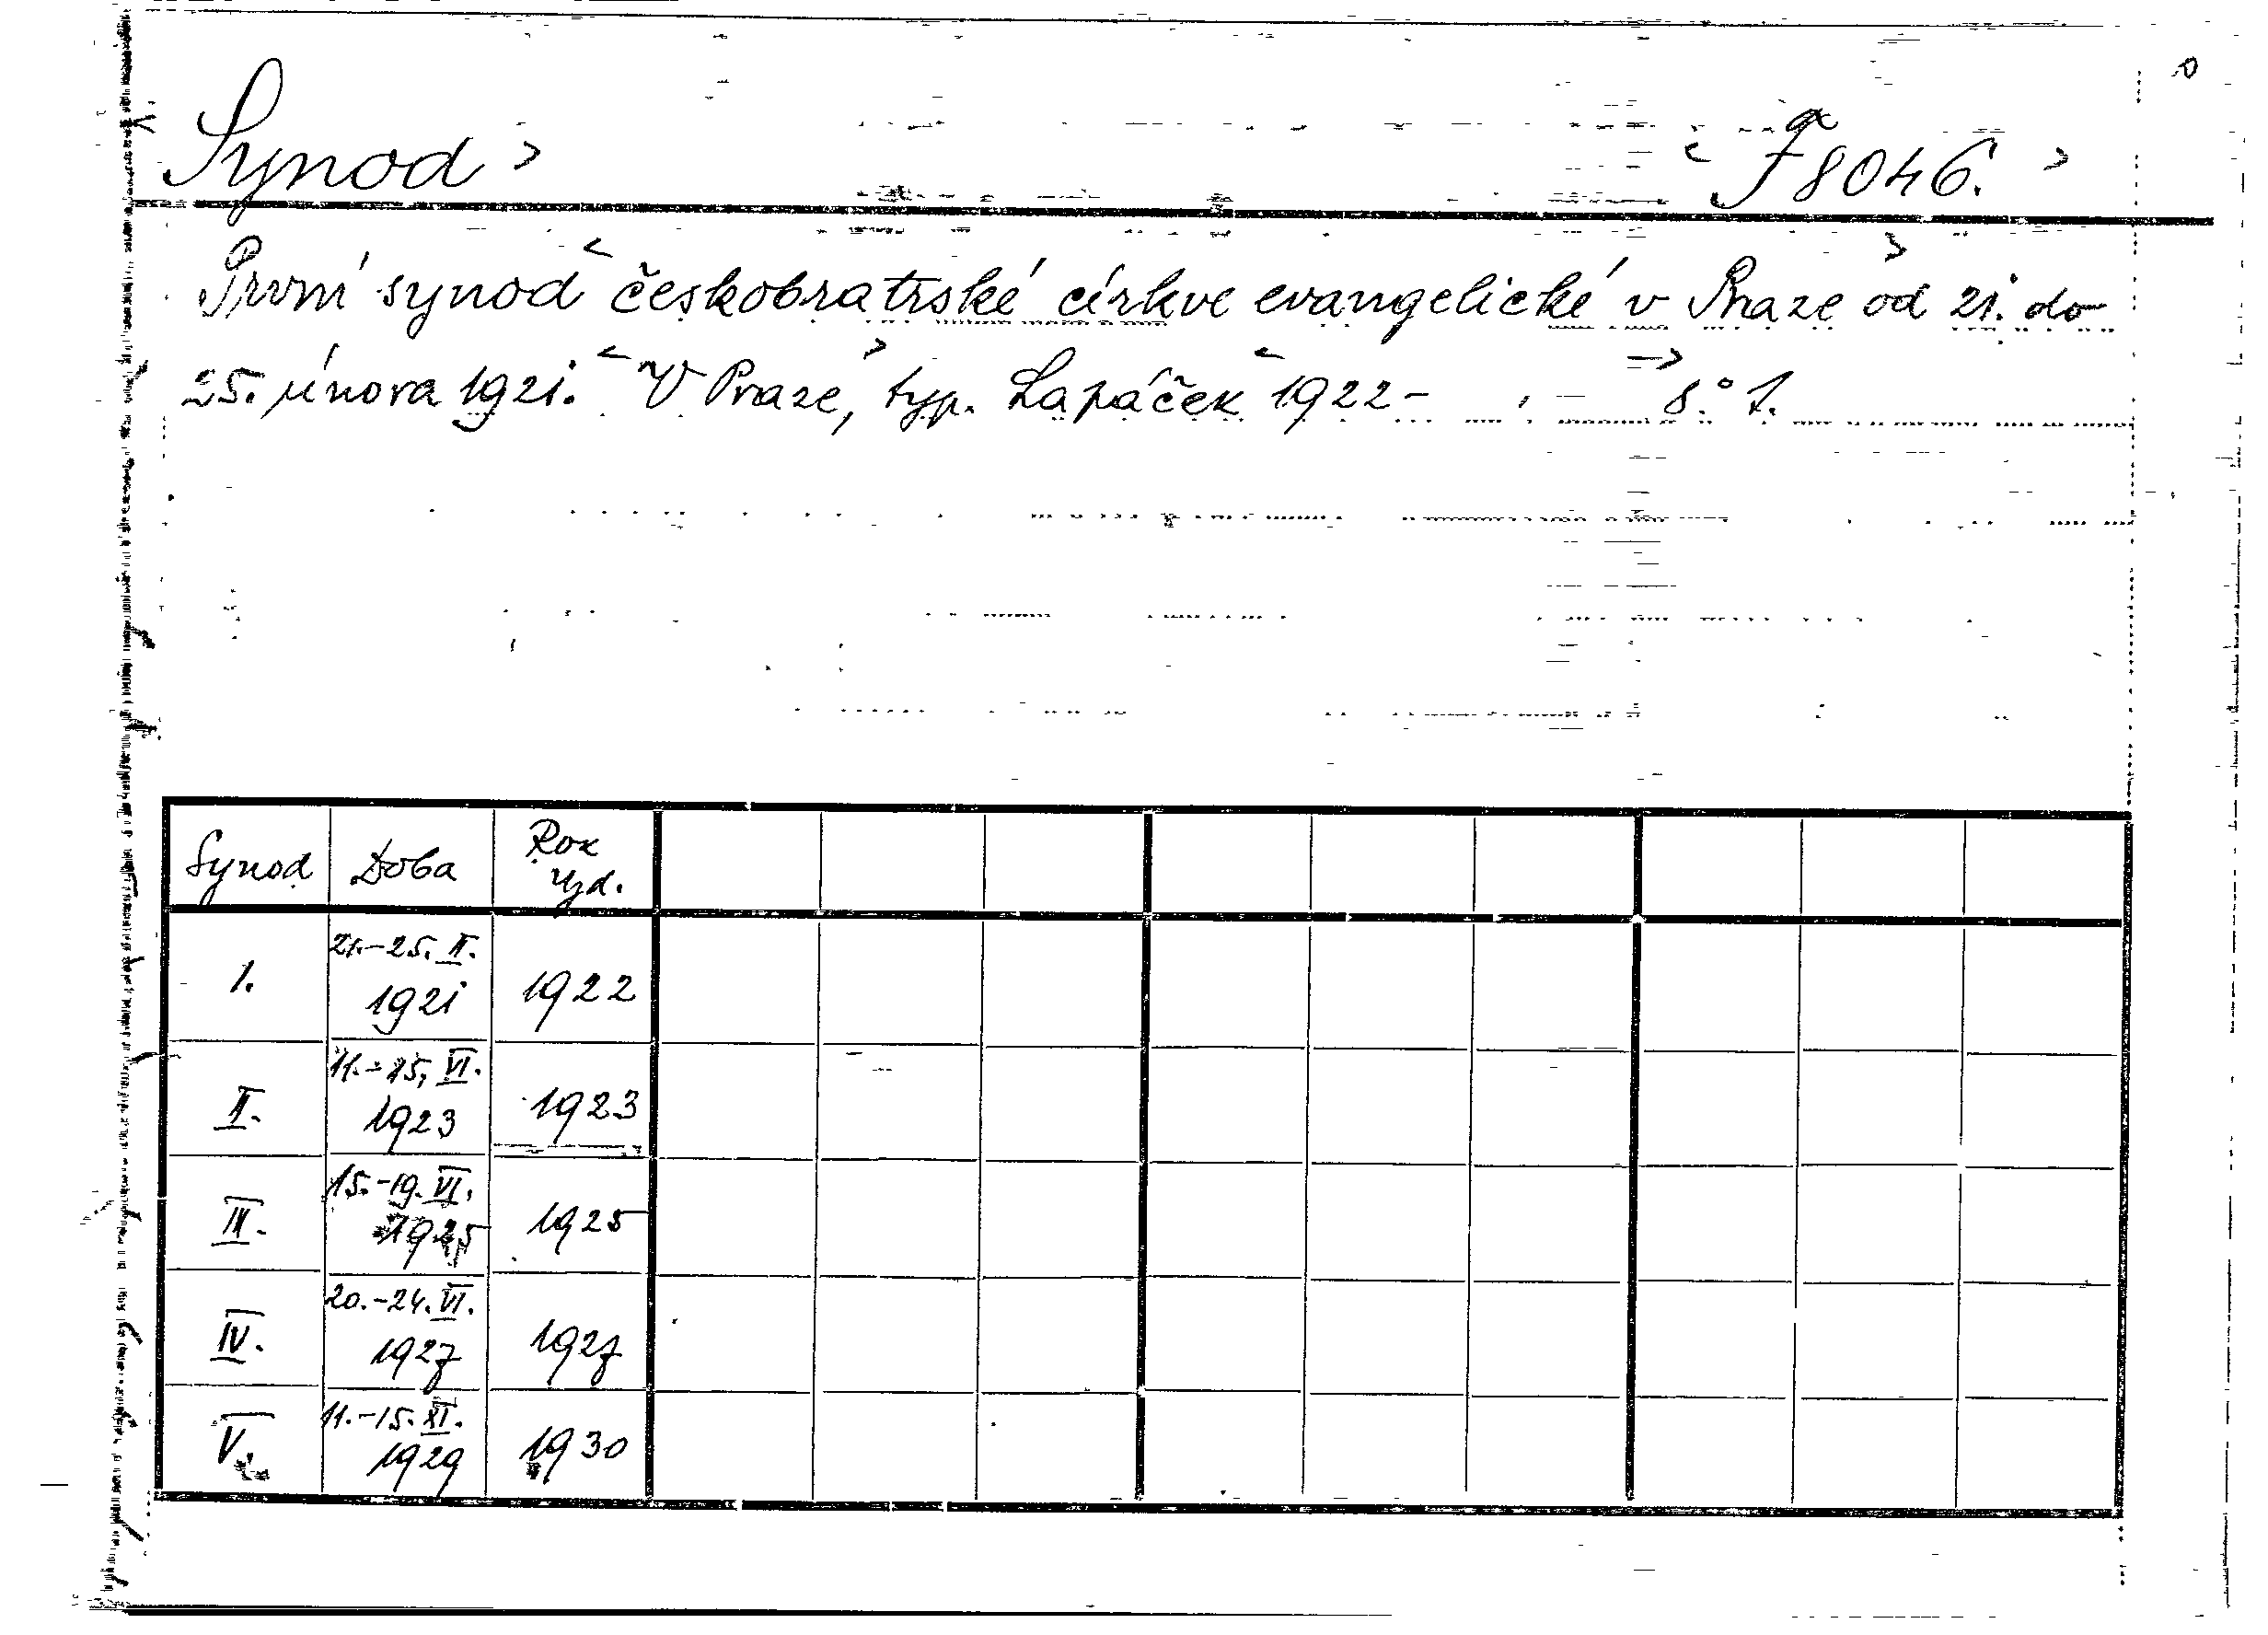 Synod
F 8046.
První synod českobratrské církve evangelické v Praze od 21. do
25. února 1921. V Praze, typ. Lapáček 1922- 8.° 1.
Synod Doba Rok vyd.
I. 21.-25. II. 1921 1922
II. 11.-15. VI. 1923 1923
III. 15.-19. VI. 1925 1925
IV. 20.-24. VI. 1927 1927
V. 11.-15. XI. 1929 1930